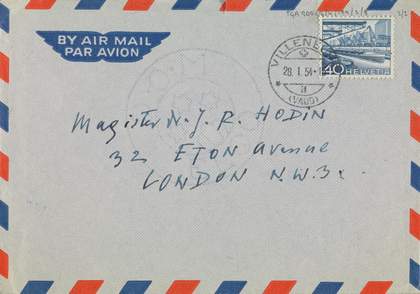 BY AIR MAIL
PAR AVION
VILLENEUVE
29.1.54
(VAUD)
40 HELVETIA
Magister N. J. R. HODIN
32 ETON Avenue
LONDON N.W.3.